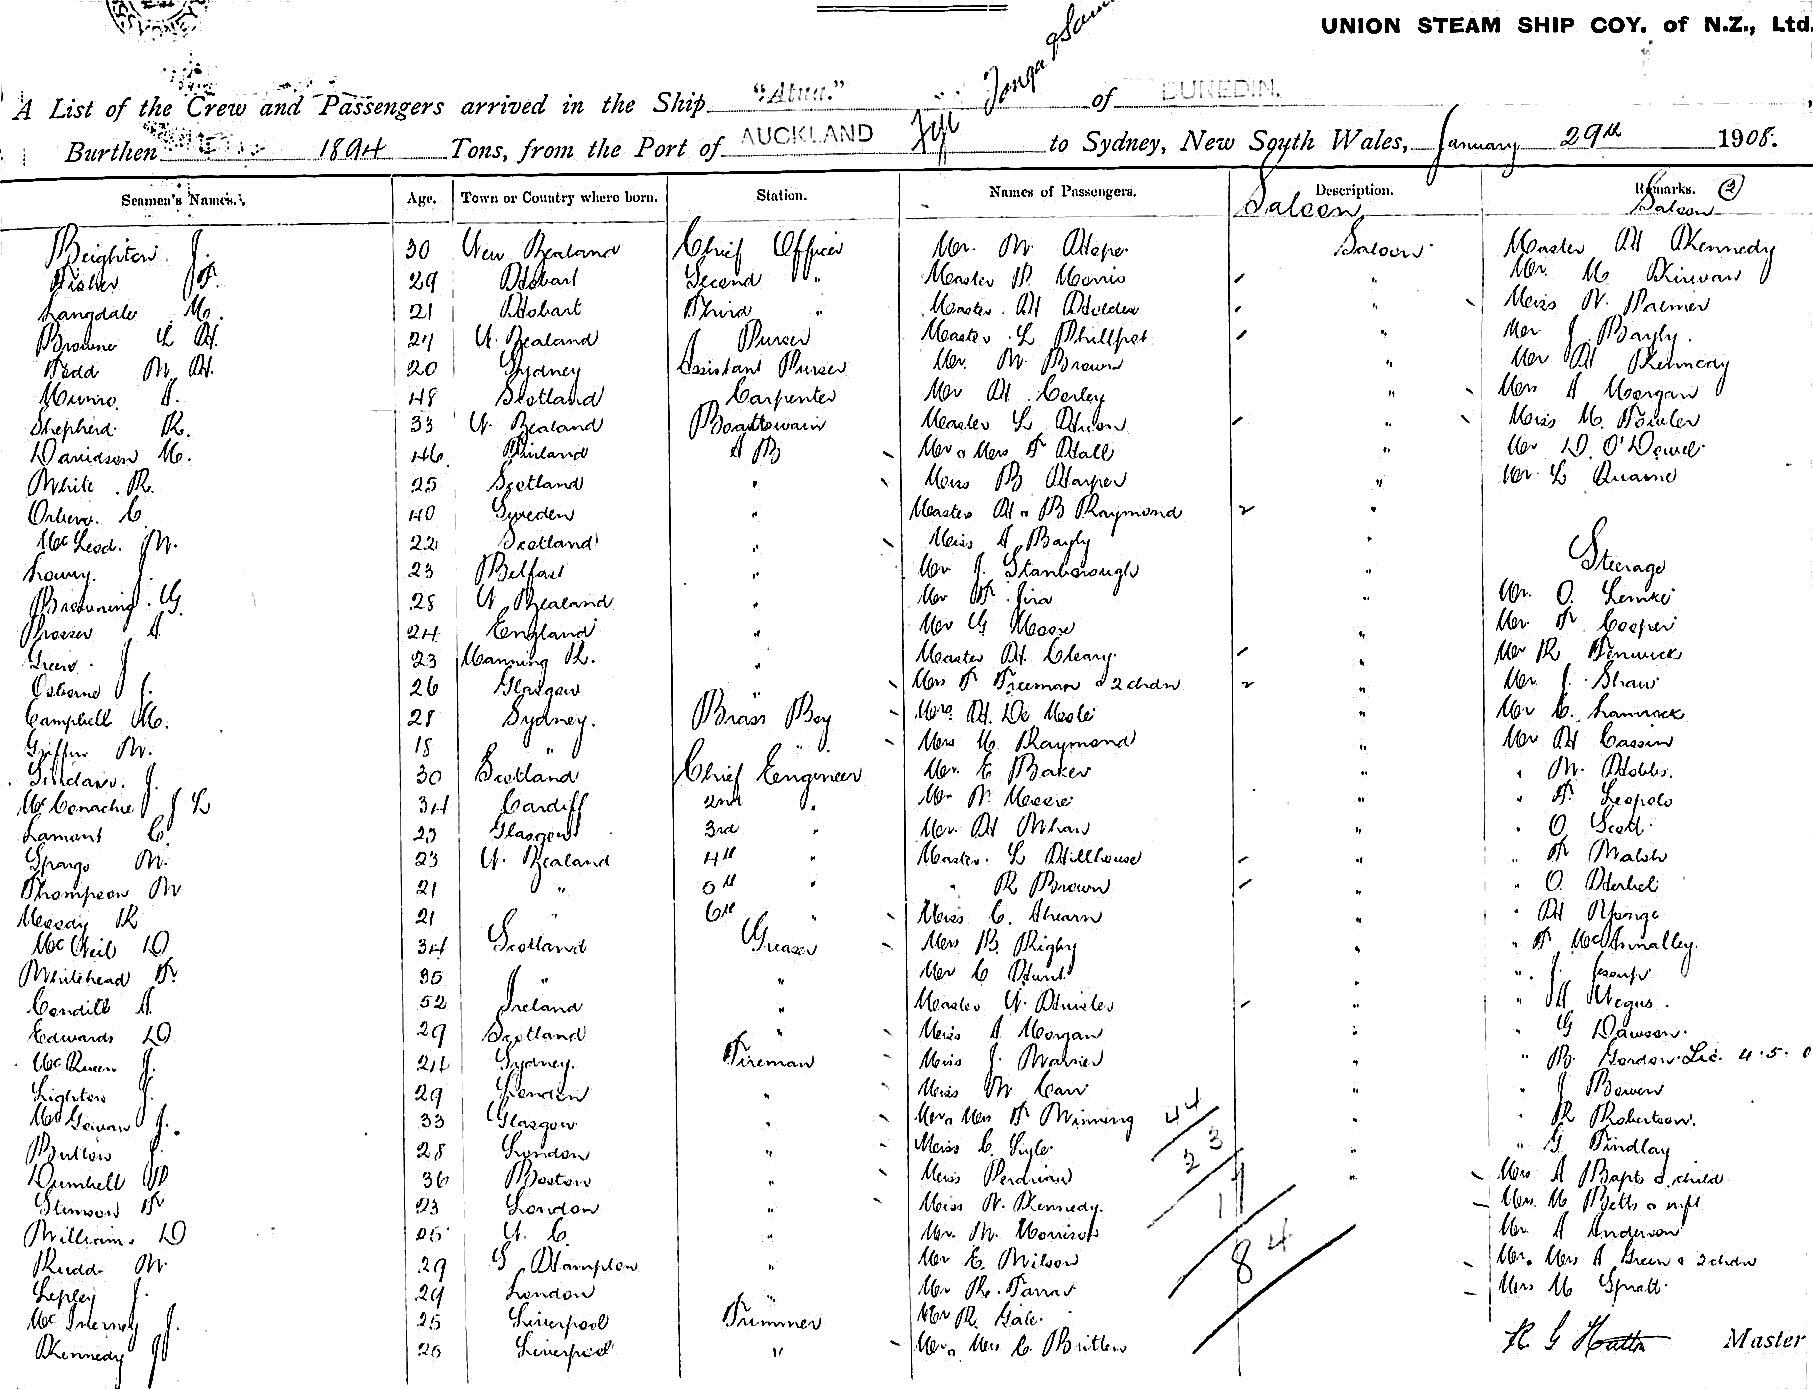 UNION STEAM SHIP COY. of N.Z., Ltd.
Tonga & Sam
A List of the Crew and Passengers arrived in the Ship "Atua." of DUNEDIN.
Burthen 1894 Tons, from the Port of AUCKLAND Fiji to Sydney, New South Wales, January 29th 1908.
Seamen's Names. Age. Town or Country where born. Station. Names of Passengers. Description. Remarks. 2
Saloon Saloon
Beighton J. 30 New Zealand Chief Officer Mr. W. Hope Saloon Master H Kennedy
Fisher F. 29 Hobart Second " Master Morris " Mr M Kirwan
Langdale M. 21 Hobart Third " Master H Holden " Miss Palmer
Browne L H. N. Zealand Purser Master L Phillpot " Mr J Bayly.
W H. 20 Sydney Assistant Purser Mr. W Brown " Mr H Kennedy
Munro A. 48 Scotland Carpenter Mr H Corley " Mrs A Morgan
Shepherd R. 33 N. Zealand Boatswain Master L " Miss M. Fowler
Davidson M. 46 Finland A B Mr & Mrs F Hall " Mr D. O'Dowd
White R. 25 Scotland " Miss B Harper " Mr L Quaine
C. 40 Sweden " Master H & B Raymond "
McLeod. W. 22 Scotland " Miss A Bayly "
Lowry. J. 23 Belfast " Mr J. Stanborough " Steerage
Browning. G. 28 N Zealand " Mr F. Jira " Mr. O. Lemke
Prosser A. 24 England " Mr G Moore " Mr. F Cooper
J 23 Manning R. " Master H. Cleary. " Mr R Fenwick
Osborne J. 26 Glasgow " Mrs F Freeman & 2 chdn " Mr. J. Shaw
Campbell M. 28 Sydney. Brass Boy Mrs H. De Mesle " Mr C.
Griffin W. 18 " Mrs M. Raymond " Mr H Cassin
Sinclair. J. 30 Scotland Chief Engineer Mr. E Baker " " W. Hobbs.
McConachie J L 34 Cardiff 2nd " Mr W. Moore " " F. Leopold
Lamont C. 23 Glasgow 3rd " Mr. H " " O Scott.
Spargo W. 23 N. Zealand 4th " Master. L Hillhouse " " F Walsh
Thompson W 21 " 5th " " R Brown " " O.
R 21 " 6th " Miss C. Ahearn " " H
McNeil D 34 Scotland Greaser Mrs B. Rigby " " F McAnnalley.
Whitehead F. 35 " " Mr C Hunt " " J. Jessup
Condill A 52 Ireland " Master N. " " A Negus.
Edwards D 29 Scotland " Miss A Morgan " " G Dawson.
McQueen J. 24 Sydney. Fireman Miss J. Warner " " Gordon. Lic. 4.5.0
Lighton J. 29 London " Miss W Carr " " J Bowen
McGowan J. 33 Glasgow " Mr & Mrs F Winning 44 " " R Robertson.
Button J 28 London " Miss C. Lyle 23 " " G. Findlay
Dumbell W 36 Boston " Miss Perdriau 17 " Mrs A & child
Stimson F 23 London " Miss N. Kennedy. Mrs. M Betts & inft
Williams D 25 N. C. " Mr. W. Morrison 84 Mr. A Anderson
Rudd W 29 S Hampton " Mr E. Wilson Mr. Mrs A Green & 2 chdn
Lepley J. 29 London " Mr R. Farrar Mrs M Spratt.
McInerney J. 25 Liverpool Trimmer Mr R. Gale.
Kennedy W 26 Liverpool " Mr & Mrs C. Britten R G Hutton Master